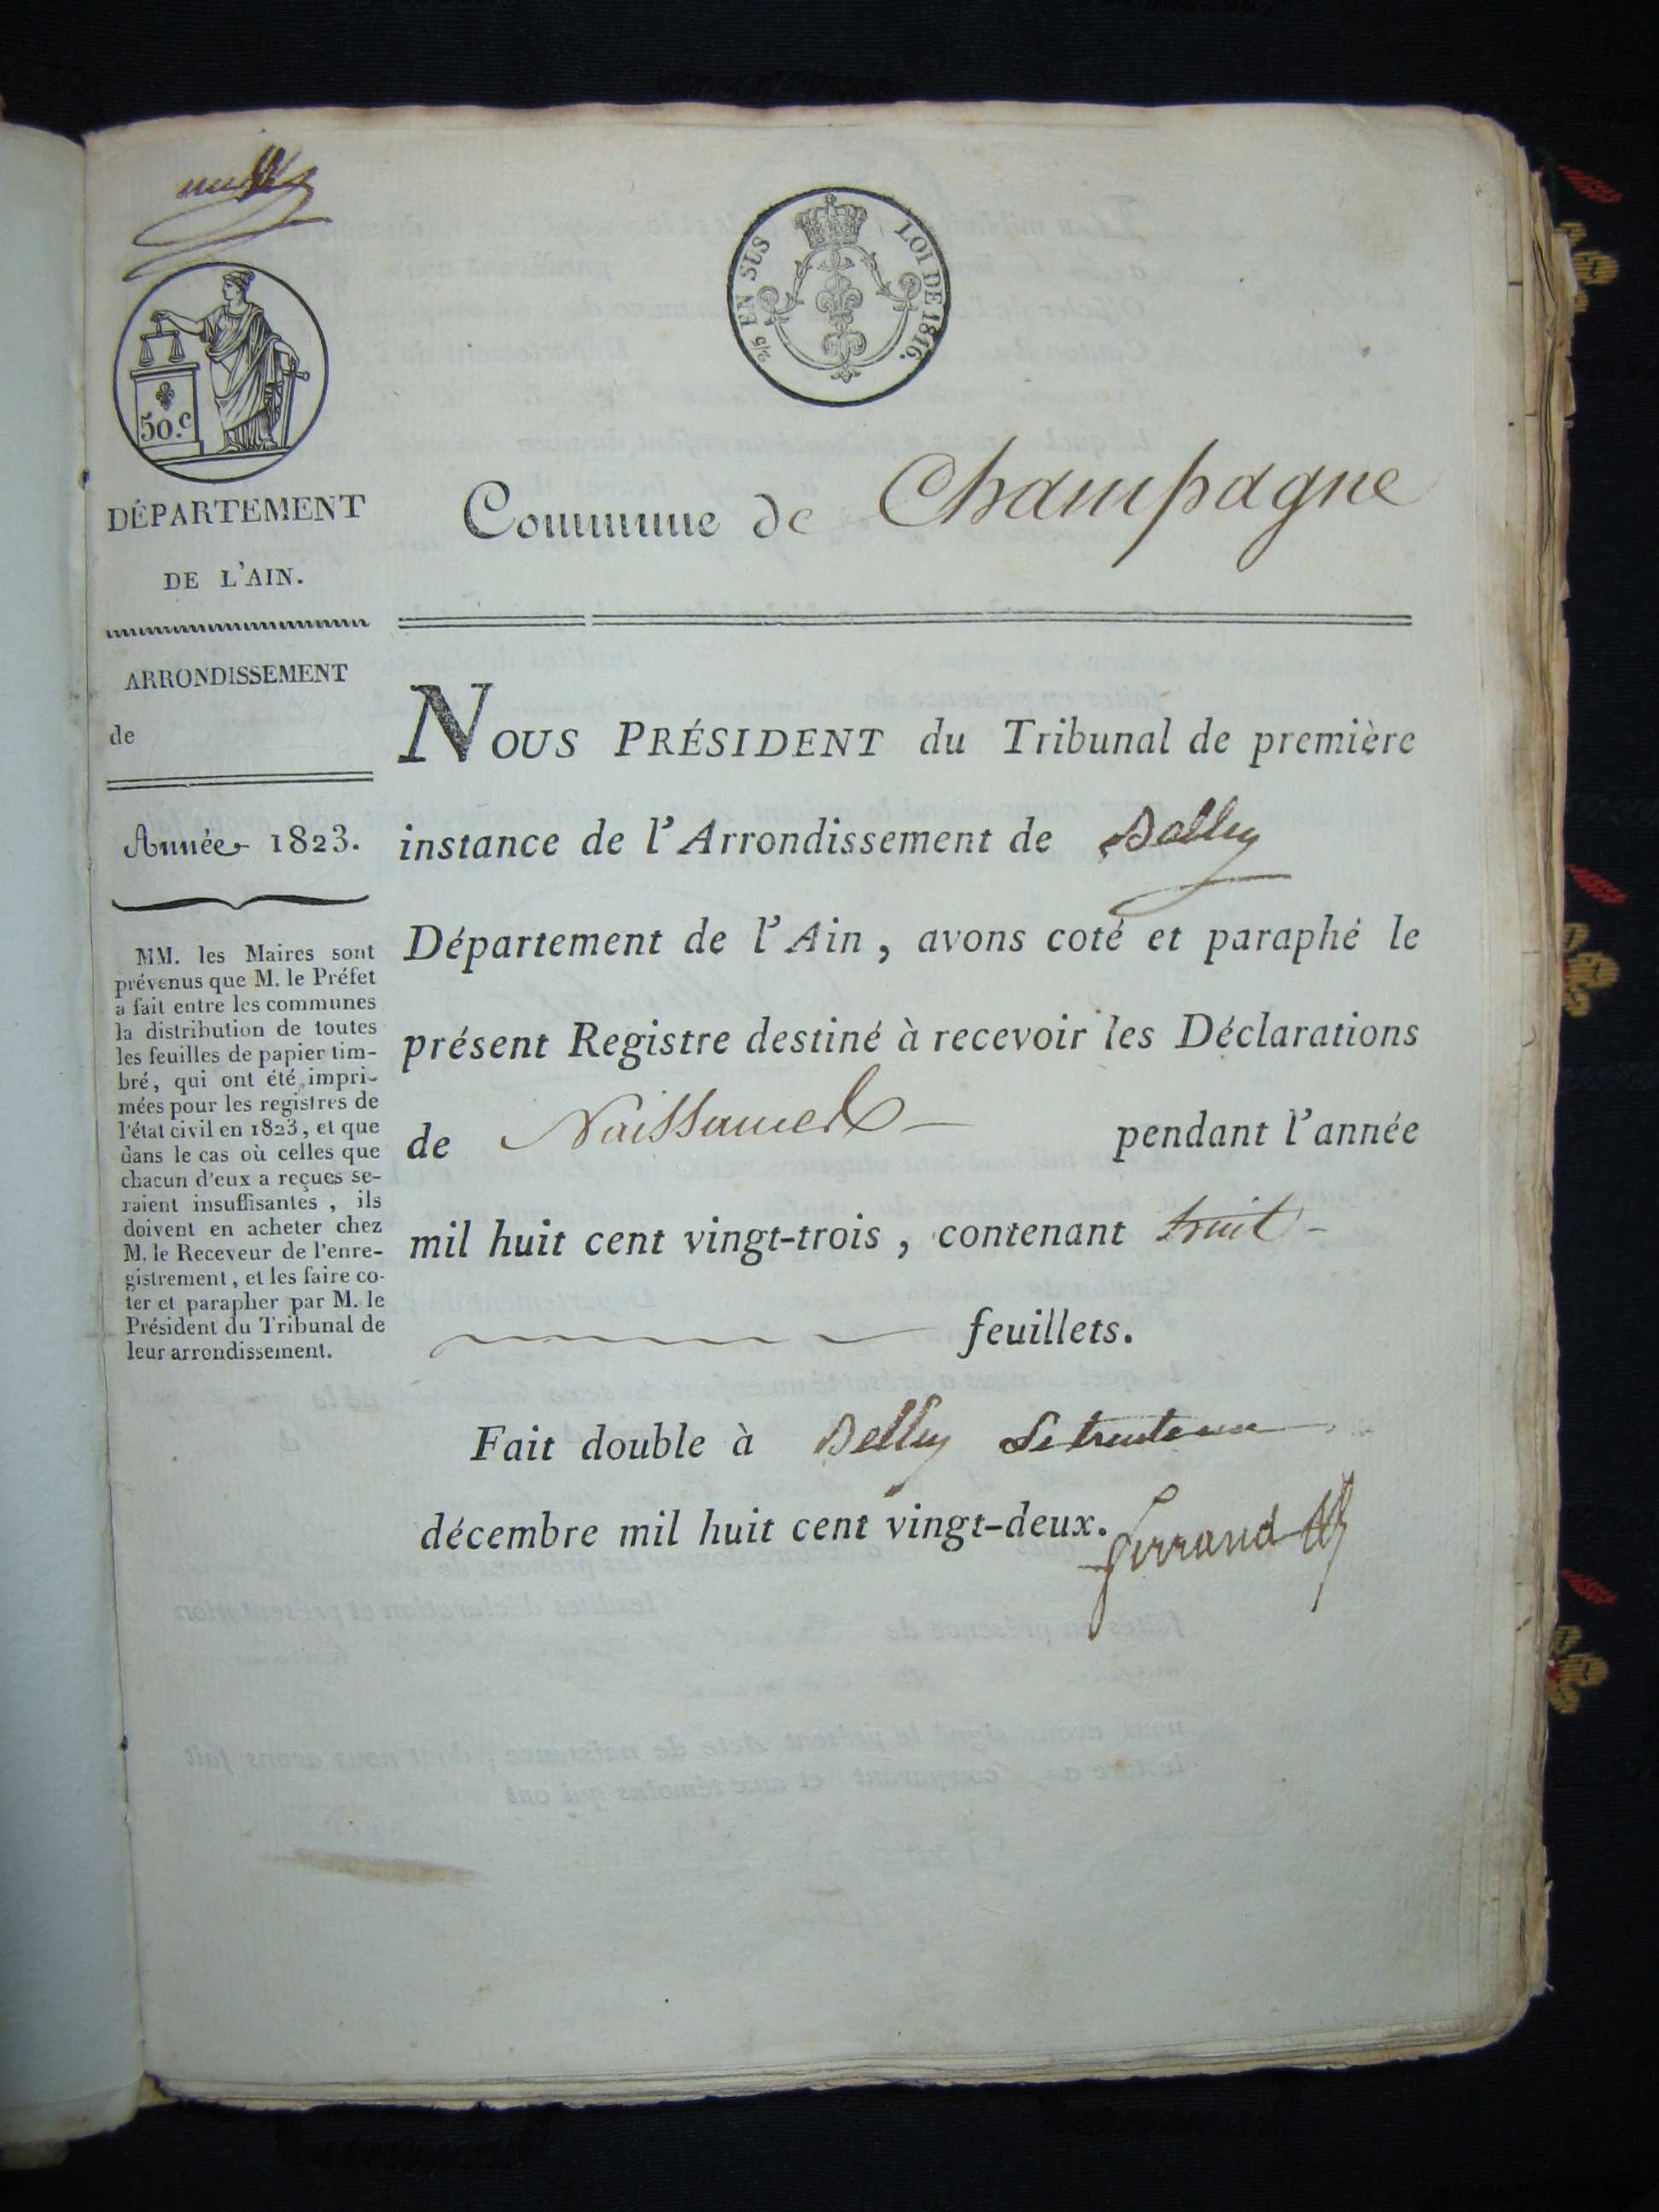 2/5 EN SUS LOI DE 1816.
50.c
DÉPARTEMENT
DE L'AIN.
ARRONDISSEMENT
de
Année 1823.
MM. les Maires sont
prévenus que M. le Préfet
a fait entre les communes
la distribution de toutes
les feuilles de papier tim-
bré, qui ont été impri-
mées pour les registres de
l'état civil en 1823, et que
dans le cas où celles que
chacun d'eux a reçues se-
raient insuffisantes, ils
doivent en acheter chez
M. le Receveur de l'enre-
gistrement, et les faire co-
ter et parapher par M. le
Président du Tribunal de
leur arrondissement.
Commune de Champagne
NOUS PRÉSIDENT du Tribunal de première
instance de l'Arrondissement de Belley
Département de l'Ain, avons coté et paraphé le
présent Registre destiné à recevoir les Déclarations
de Naissances pendant l'année
mil huit cent vingt-trois, contenant huit
feuillets.
Fait double à Belley Le trente un
décembre mil huit cent vingt-deux.